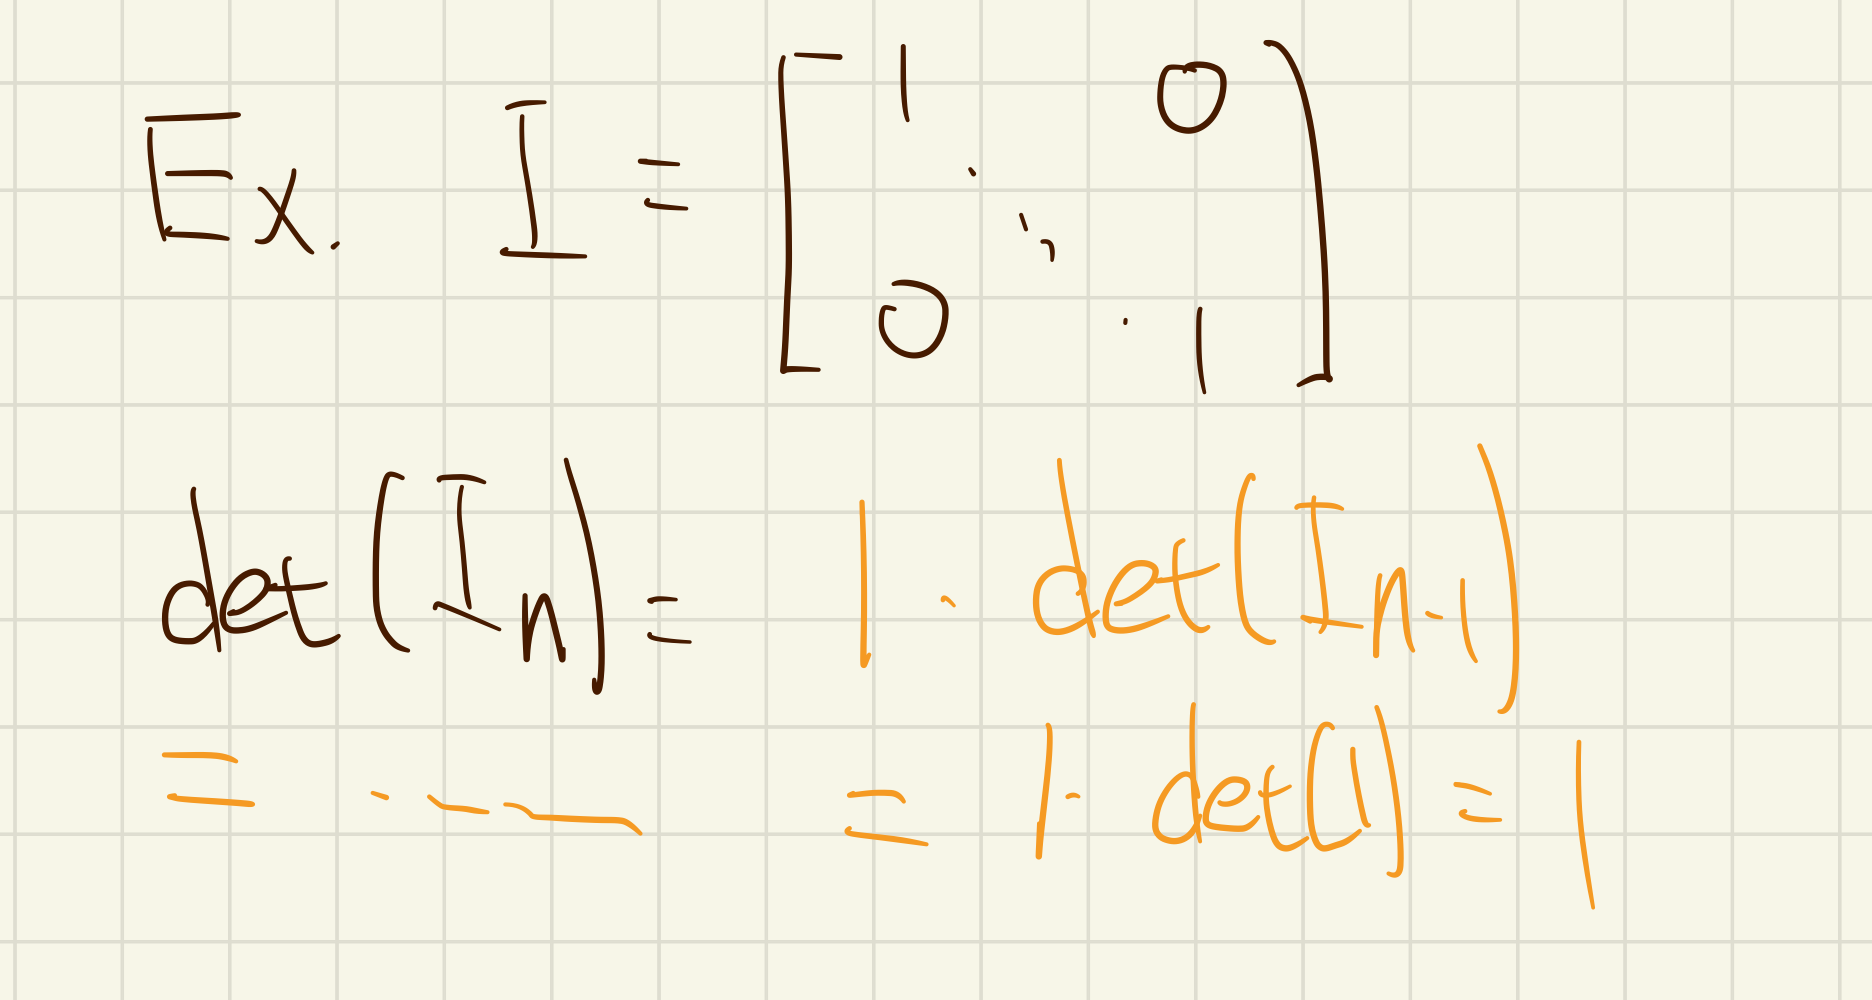 Ex. I = [ 1 0 ⋱ 0 1 ]
det(Iₙ) = 1 · det(Iₙ₋₁)
= · - — = 1 · det(1) = 1